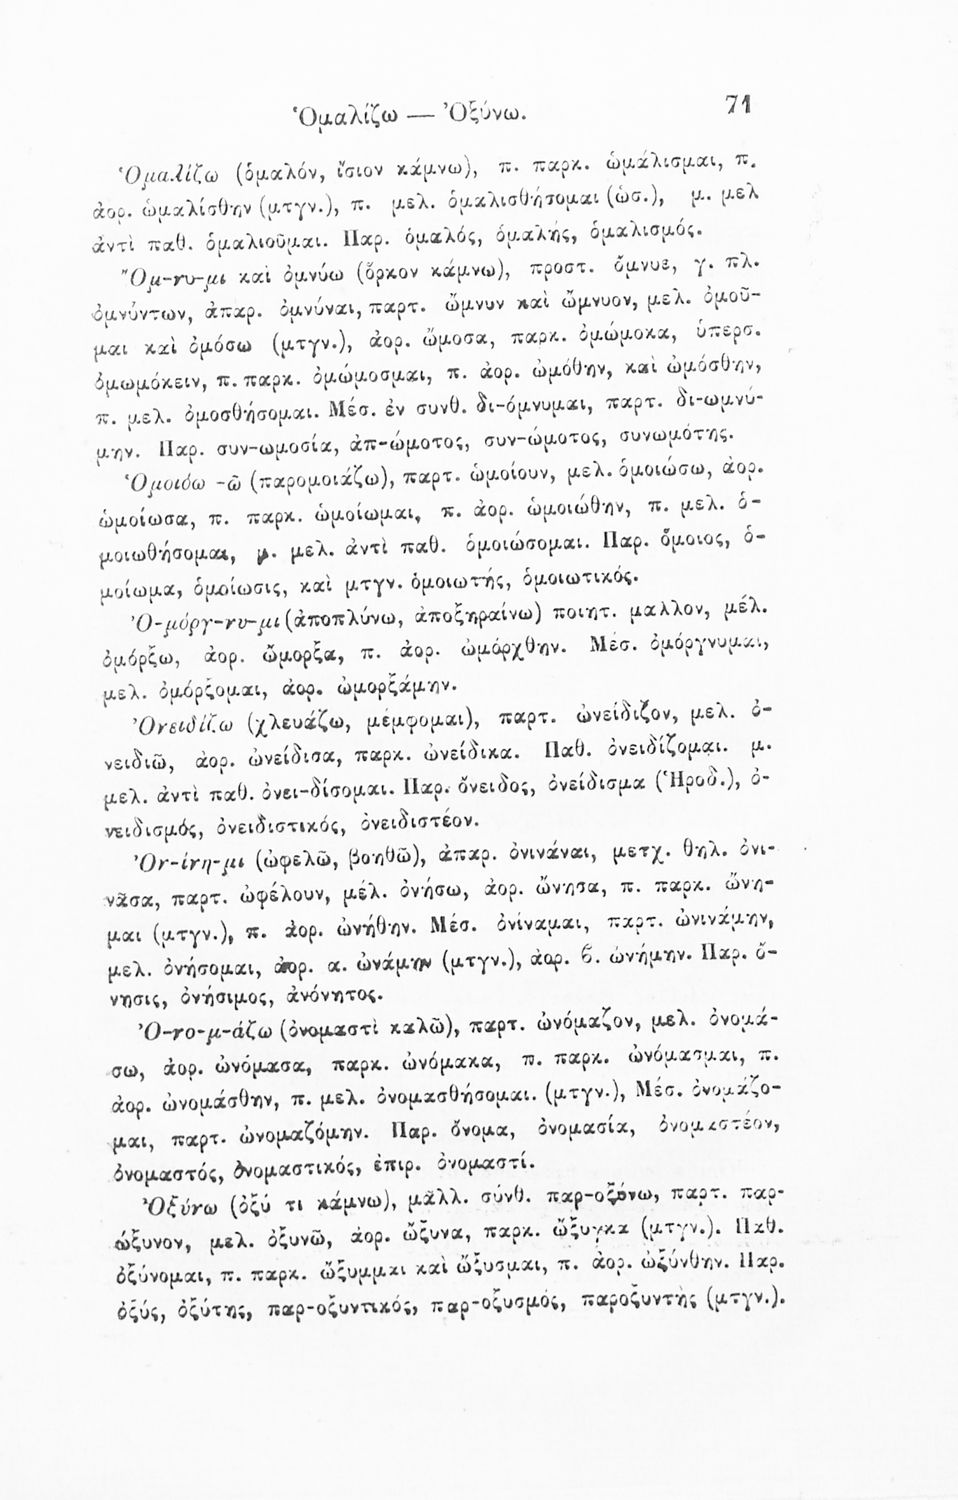 Ὁμαλίζω — Ὀξύνω. 71
Ὁμαλίζω (ὁμαλόν, ἴσιον κάμνω), π. παρκ. ὡμάλισμαι, π.
ἀορ. ὡμαλίσθην (μτγν.), π. μελ. ὁμαλισθήσομαι (ὡσ.), μ. μελ
ἀντὶ παθ. ὁμαλιοῦμαι. Παρ. ὁμαλός, ὁμαλής, ὁμαλισμός.
Ὄμ-νυ-μι καὶ ὀμνύω (ὅρκον κάμνω), προστ. ὄμνυε, γ. πλ.
ὀμνύντων, ἀπαρ. ὀμνύναι, παρτ. ὤμνυν καὶ ὤμνυον, μελ. ὀμοῦ-
μαι καὶ ὀμόσω (μτγν.), ἀορ. ὤμοσα, παρκ. ὀμώμοκα, ὑπερσ.
ὀμωμόκειν, π. παρκ. ὀμώμοσμαι, π. ἀορ. ὠμόθην, καὶ ὠμόσθην,
π. μελ. ὀμοσθήσομαι. Μέσ. ἐν συνθ. δι-όμνυμαι, παρτ. δι-ωμνύ-
μην. Παρ. συν-ωμοσία, ἀπ-ώμοτος, συν-ώμοτος, συνωμότης.
Ὁμοιόω -ῶ (παρομοιάζω), παρτ. ὡμοίουν, μελ. ὁμοιώσω, ἀορ.
ὡμοίωσα, π. παρκ. ὡμοίωμαι, π. ἀορ. ὡμοιώθην, π. μελ. ὁ-
μοιωθήσομαι, μ. μελ. ἀντὶ παθ. ὁμοιώσομαι. Παρ. ὅμοιος, ὁ-
μοίωμα, ὁμοίωσις, καὶ μτγν. ὁμοιωτής, ὁμοιωτικός.
Ὀ-μόργ-νυ-μι (ἀποπλύνω, ἀποξηραίνω) ποιητ. μαλλον, μέλ.
ὀμόρξω, ἀορ. ὤμορξα, π. ἀορ. ὠμόρχθην. Μέσ. ὀμόργνυμαι,
μελ. ὀμόρξομαι, ἀορ. ὠμορξάμην.
Ὀνειδίζω (χλευάζω, μέμφομαι), παρτ. ὠνείδιζον, μελ. ὀ-
νειδιῶ, ἀορ. ὠνείδισα, παρκ. ὠνείδικα. Παθ. ὀνειδίζομαι. μ.
μελ. ἀντὶ παθ. ὀνει-δίσομαι. Παρ. ὄνειδος, ὀνείδισμα (Ἡροδ.), ὀ-
νειδισμός, ὀνειδιστικός, ὀνειδιστέον.
Ὀν-ίνη-μι (ὠφελῶ, βοηθῶ), ἀπαρ. ὀνινάναι, μετχ. θηλ. ὀνι-
νᾶσα, παρτ. ὠφέλουν, μέλ. ὀνήσω, ἀορ. ὤνησα, π. παρκ. ὤνη-
μαι (μτγν.), π. ἀορ. ὠνήθην. Μέσ. ὀνίναμαι, παρτ. ὠνινάμην,
μελ. ὀνήσομαι, ἀορ. α. ὠνάμην (μτγν.), ἀορ. β. ὠνήμην. Παρ. ὄ-
νησις, ὀνήσιμος, ἀνόνητος.
Ὀ-νο-μ-άζω (ὀνομαστὶ καλῶ), παρτ. ὠνόμαζον, μελ. ὀνομά-
σω, ἀορ. ὠνόμασα, παρκ. ὠνόμακα, π. παρκ. ὠνόμασμαι, π.
ἀορ. ὠνομάσθην, π. μελ. ὀνομασθήσομαι. (μτγν.), Μέσ. ὀνομάζο-
μαι, παρτ. ὠνομαζόμην. Παρ. ὄνομα, ὀνομασία, ὀνομαστέον,
ὀνομαστός, ὀνομαστικός, ἐπιρ. ὀνομαστί.
Ὀξύνω (ὀξύ τι κάμνω), μᾶλλ. σύνθ. παρ-οξύνω, παρτ. παρ-
ώξυνον, μελ. ὀξυνῶ, ἀορ. ὤξυνα, παρκ. ὤξυγκα (μτγν.). Παθ.
ὀξύνομαι, π. παρκ. ὤξυμμαι καὶ ὤξυσμαι, π. ἀορ. ὠξύνθην. Παρ.
ὀξύς, ὀξύτης, παρ-οξυντικός, παρ-οξυσμός, παροξυντής (μτγν.).